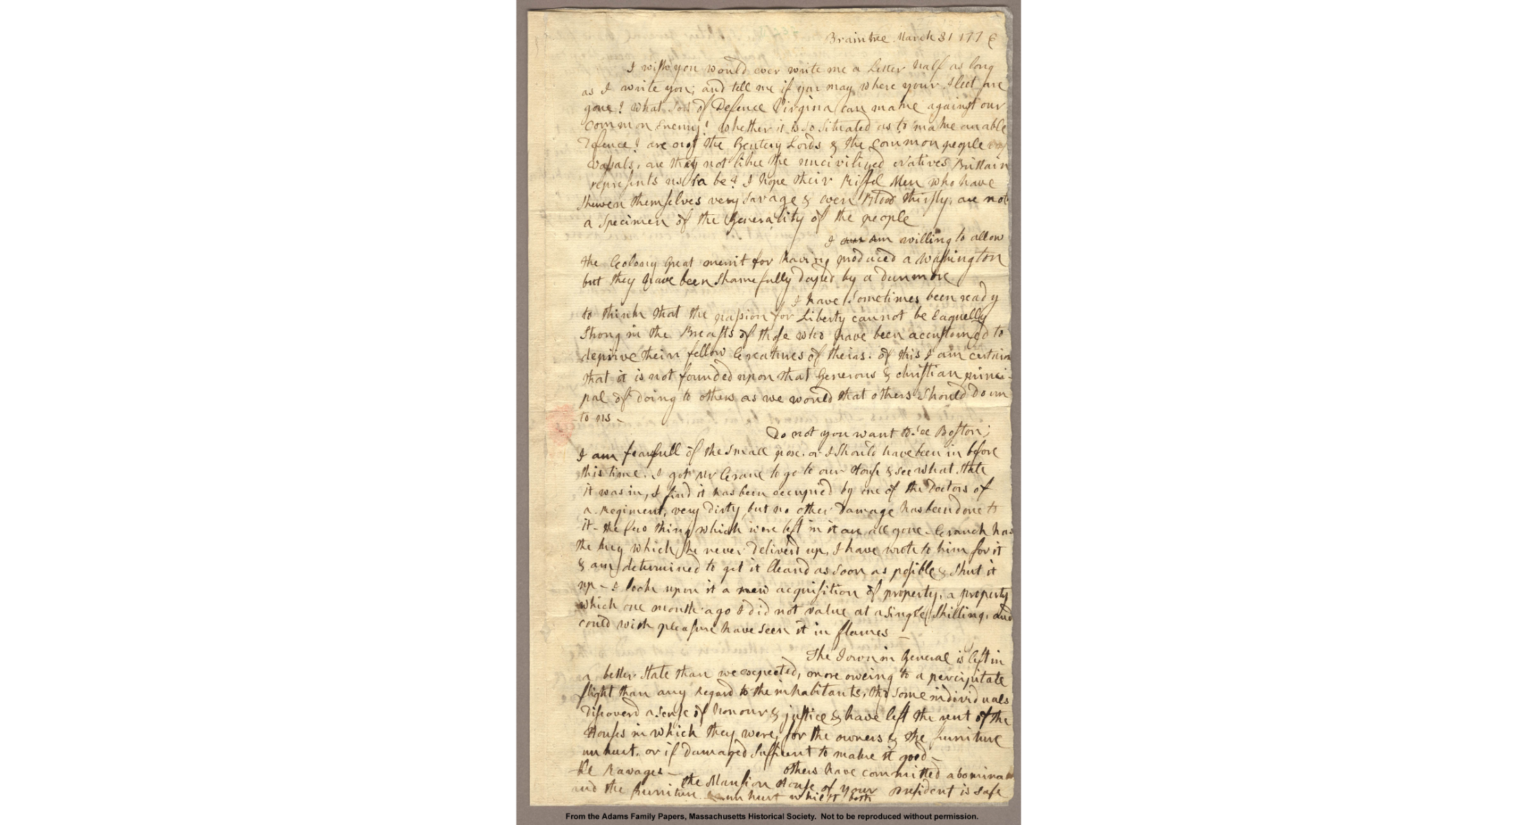 Braintree March 31 1776
I wish you would ever write me a Letter half as long
as I write you; and tell me if you may where your Fleet are
gone? What sort of Defence Virginia can make against our
common Enemy? Whether it is so situated as to make an able
Defence? are not the Gentery Lords & the common people
vassals, are they not like the uncivilized Natives Brittain
represents us to be? I hope their Riffel Men who have
shewen themselves very savage & even Blood thirsty; are not
a specimen of the Generality of the people
I am willing to allow
the Colony great merrit for having produced a Washington
but they have been shamefully duped by a Dunmore
I have sometimes been ready
to think that the passion for Liberty cannot be Eaquelly
strong in the Breasts of those who have been accustomed to
deprive their fellow Creatures of theirs. of this I am certain
that it is not founded upon that Generous & christian princi
pal of doing to others as we would that others should do un
to us -
Do not you want to see Boston;
I am fearfull of the small pox, or I should have been in before
this time. I got Mr Crane to go to our House & see what state
it was in, I find it has been occupied by one of the Doctors of
a Regiment, very dirty but no other Damage has been done to
it - the few things which were left in it are all gone - Cranch has
the key which he never deliverd up, I have wrote to him for it
& am determined to get it cleand as soon as posible & shut it
up - I look upon it a new acquisition of property, a property
which one month ago I did not value at a single Shilling, and
could with pleasure have seen it in flames -
The Town in General is left in
a better state than we expected, more oweing to a percipitate
flight than any Regard to the inhabitants, tho some individuals
discoverd a sense of honour & justice & have left the rent of the
Houses in which they were, for the owners & the furniture
unhurt, or if damaged sufficent to make it good -
others have committed abomina
ble Ravages - the Mansion House of your president is safe
and the furniture unhurt whilst both
From the Adams Family Papers, Massachusetts Historical Society. Not to be reproduced without permission.